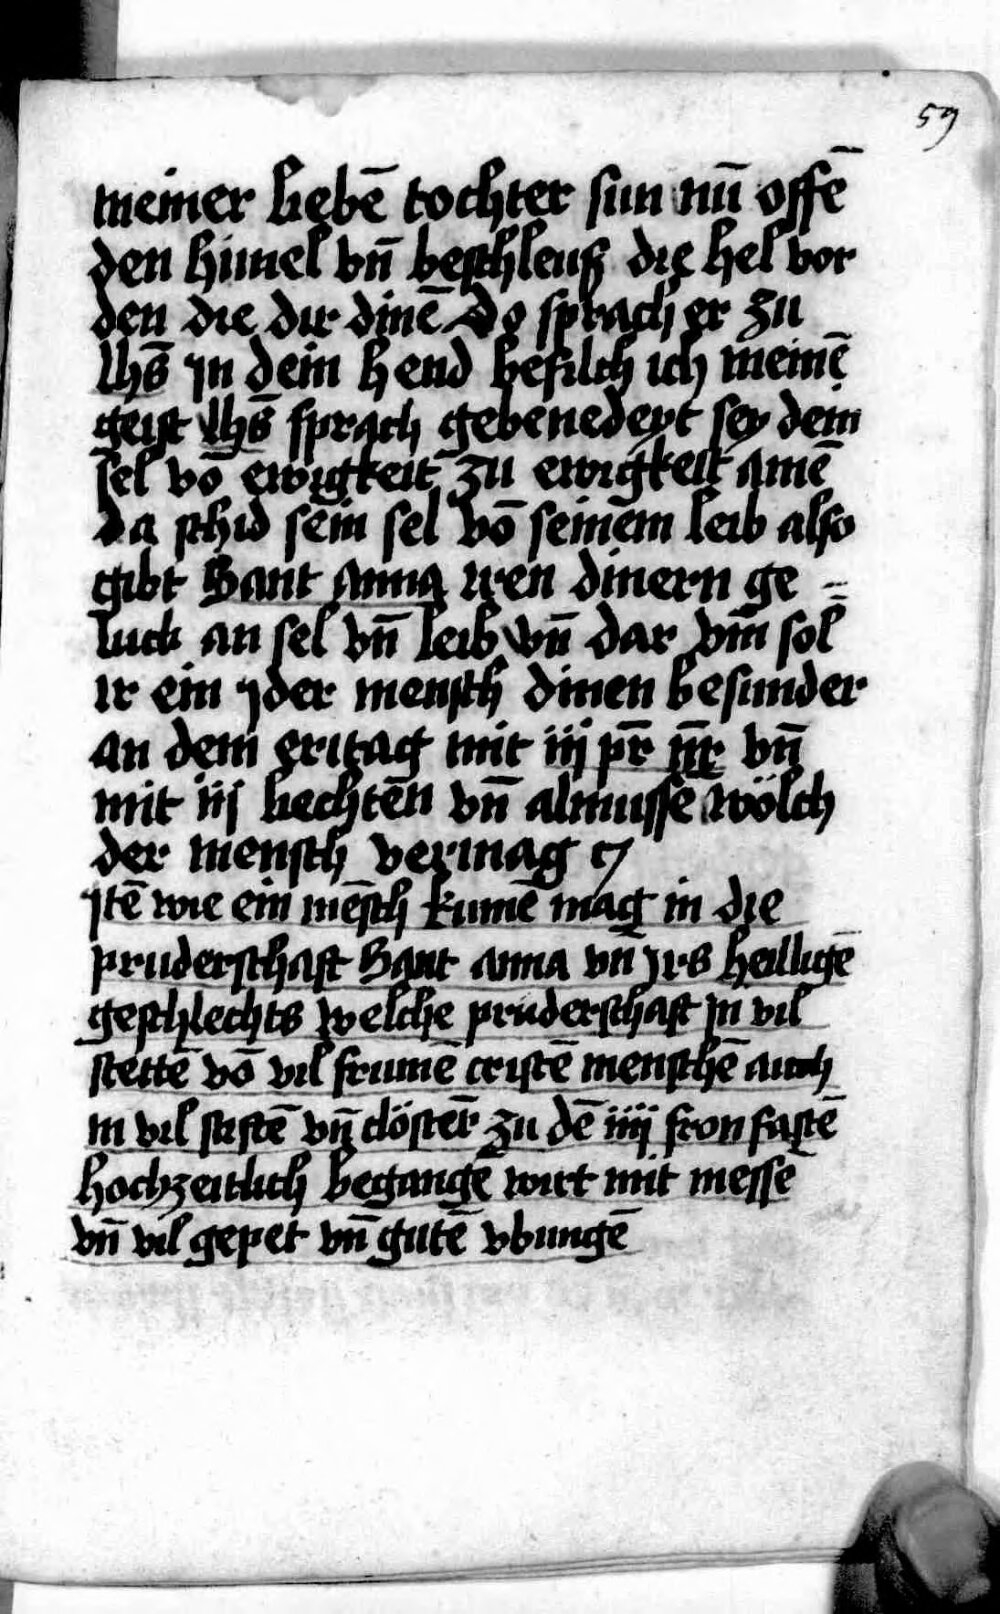 59
meiner liebē tochter sun nū offē
den himel vn̄ beschleuß die hel vor
den die dir dinē do sprach er zu
ihs̄ in dein hend befilch ich meinē
geist ihs̄ sprach gebenedeyt sey dein
sel vō ewigkeit zu ewigkeit amē
da schid sein sel vō seinem leib also
gibt Sant anna iren dinern ge =
luck an sel vn̄ leib vn̄ dar vm̄ sol
ir ein yder mensch dinen besunder
an dem eritag mit iij pr̄ nr̄ vn̄
mit iij liechten vn̄ almusse wölch
der mensch vermag
jtē wie ein mēsch kumē mag in die
pruderschaft Sant anna vn̄ jrs heilligē
geschlechts welche pruderschaft jn vil
stettē vō vil frumē cristē menschē auch
in vil stiftē vn̄ clöster̄ zu dē iiij fron fastē
hochzeitlich begangē wirt mit messē
vn̄ vil gepet vn̄ gutē vbungē